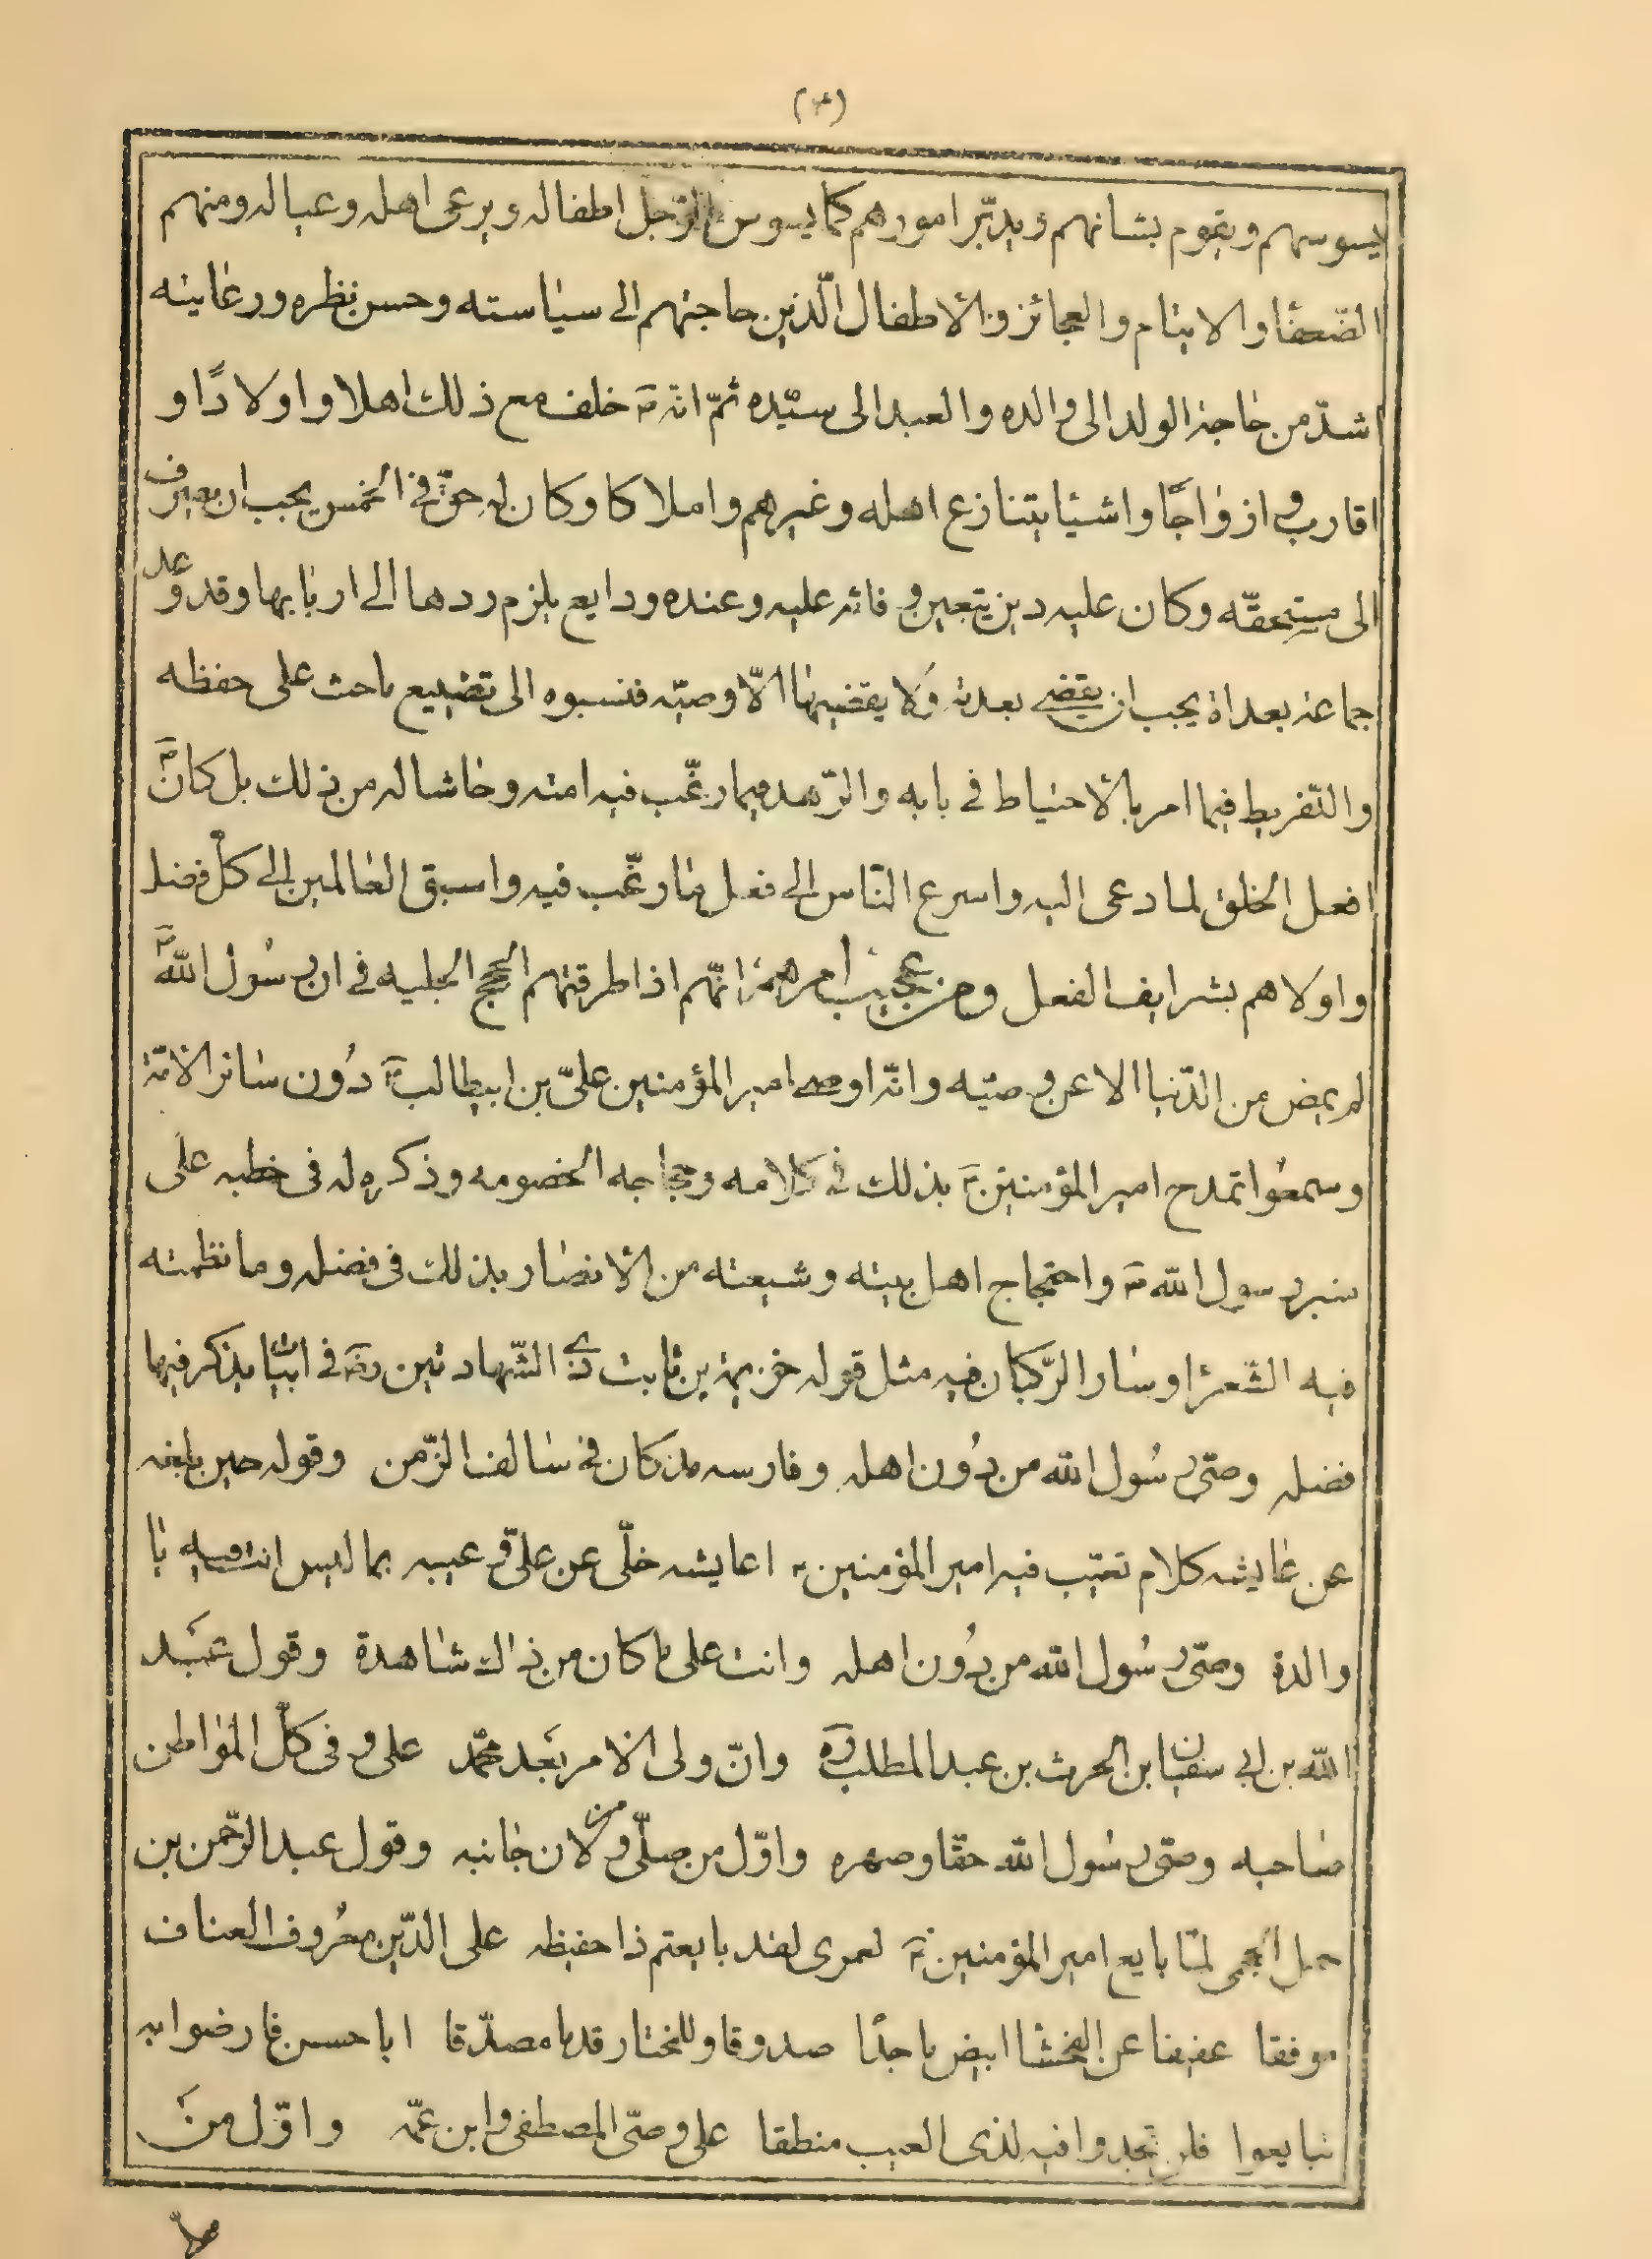 (٣)
يسوسهم ويقوم بشانهم ويدبّر امورهم كما يسوس الرّجل اطفاله ويرعى اهله وعياله ومنهم
الضّعفٰا والايتام والعجائز والأطفال الّذين حاجتهم الى سيٰاسته وحسن نظره ورعٰايته
اشدّ من حٰاجة الولد الى والده والعبد الى سيّده ثمّ انّه ص خلف مع ذلك اهلا واولادًا و
اقارب وازوٰاجًا واشيٰا يتنازع اهله وغيرهم واملاكا وكان له حقّ فى الخمس يجب ان يصرف
الى مستحقّه وكان عليه دين يتعين وفائه عليه وعنده ودايع يلزم ردها الى اربٰابها وقد وعد
جماعة بعداة يجب ان يقضى بعده ولا يقضيهٰا الّا وصيّه فنسبوه الى تضييع ماحث على حفظه
والتّفريط فيما امر بالأحتياط فى بابه والزّهد فيما رغّب فيه امته وحٰاشا له من ذلك بل كان ص
افعل الخلق لما دعى اليه واسرع النّاس الى فعل مٰا رغّب فيه واسبق العٰالمين الى كلّ فضل
واولاهم بشرايف الفعل ومن عجيب امرهم انّهم اذا طرقتهم الحجج الجليه فى ان رسُول اللّه ص
لم يمض من الدّنيا الا عن وصيّه وانّه اوصى امير المؤمنين علىّ بن ابيطالب ع دُون سٰائر الامّة
وسمعُوا تمدح امير المؤمنين ع بذلك فى كلامه وحجاجه الخصومه وذكره له فى خطبه على
منبر رسول اللّه ص واحتجاج اهل بيته وشيعته من الأنصٰار بذلك فى فضله وما نظمته
فيه الشّعرٰا وسٰار الرّكبان فيه مثل قوله خزيمة بن ثابت ذى الشّهادتين رض فى ابيات يذكر فيها
فضله وصّى رسُول اللّه من دُون اهله وفارسه مذ كان فى سٰالف الزّمن وقوله حين بلغه
عن عٰايشه كلام تعيّب فيه امير المؤمنين ع اعايشه خلّى عن علىّ وعيبه بما ليس انت فيه يٰا
والدة وصّى رسُول اللّه من دُون اهله وانت على ما كان من ذاك شاهدة وقول عبد
اللّه بن ابى سفيان ابن الحرث بن عبد المطلب ره وانّ ولى الامر بَعد محمّد على وفى كلّ المٰواطن
صٰاحبه وصّى رسُول اللّه حقّا وصهره واوّل من صلّى ومن لان جٰانبه وقول عبد الرّحمن بن
حمل الجمحى لمّا بايع امير المؤمنين ع لعمرى لقد بايعتم ذا حفيظه على الدّين معرُوف العفاف
موفقا عفيفا عن الفحشا ابيض ماجدًا صدوقا وللمختار قدما مصدّقا ابا حسن فارضوا به
تبايعوا فلن تجدوا فيه لذى العيب منطقا على وصّى المصطفى وابن عمّه واوّل من
صلّى